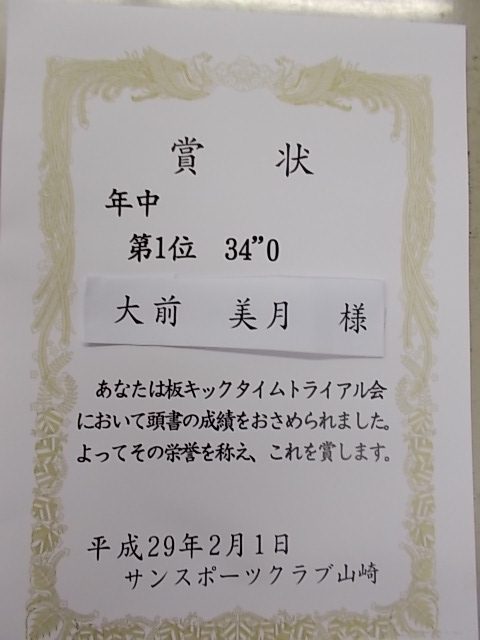 賞 状
年中
第1位 34”0
大前 美月 様
あなたは板キックタイムトライアル会
において頭書の成績をおさめられました。
よってその栄誉を称え、これを賞します。
平成29年2月1日
サンスポーツクラブ山崎